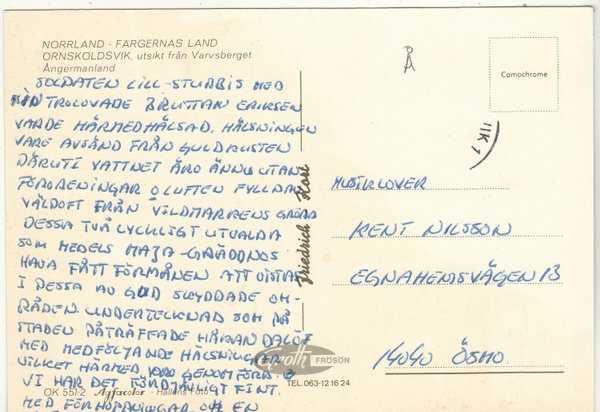 NORRLAND · FÄRGERNAS LAND
ÖRNSKÖLDSVIK, utsikt från Varvsberget
Ångermanland
SOLDATEN LILL-STURBIS MED
SIN TROLOVADE BRUTTAN ERIKSEN
VARDE HÄRMEDHÄLSAD. HÄLSNINGEN
VARE AVSÄND FRÅN GULDKUSTEN
DÄRUTI VATTNET ÄRO ÄNNU UTAN
FÖRORENINGAR O LUFTEN FYLLDA
VÄLDOFT FRÅN VILDMARKENS GRÖDA
DESSA TVÅ LYCKLIGT UTVALDA
SOM MEDELS MAJA-GRÄDDNOS
HAVA FÅTT FÖRMÅNEN ATT VISTAS
I DESSA AV GUD SKYDDADE OM-
RÅDEN. UNDERTECKNAD SOM PÅ
STADEN PÅTRÄFFADE HÄRAN DALOT
MED MEDFÖLJANDE HÄLSNINGAR
VILKET HÄRMED VORO GENOMFÖRD.
VI HAR DET FÖRDJÄVLIGT FINT.
MED FÖRHOPPNINGAR OM EN
OK 551-2 Agfacolor Hallens Foto
Friedrich Karl
Å
Comochrome
11K 1
MUSIKLOVER
KENT NILSSON
EGNAHEMSVÄGEN 13
14040 ÖSMO.
Groth FRÖSÖN
TEL 063-12 16 24